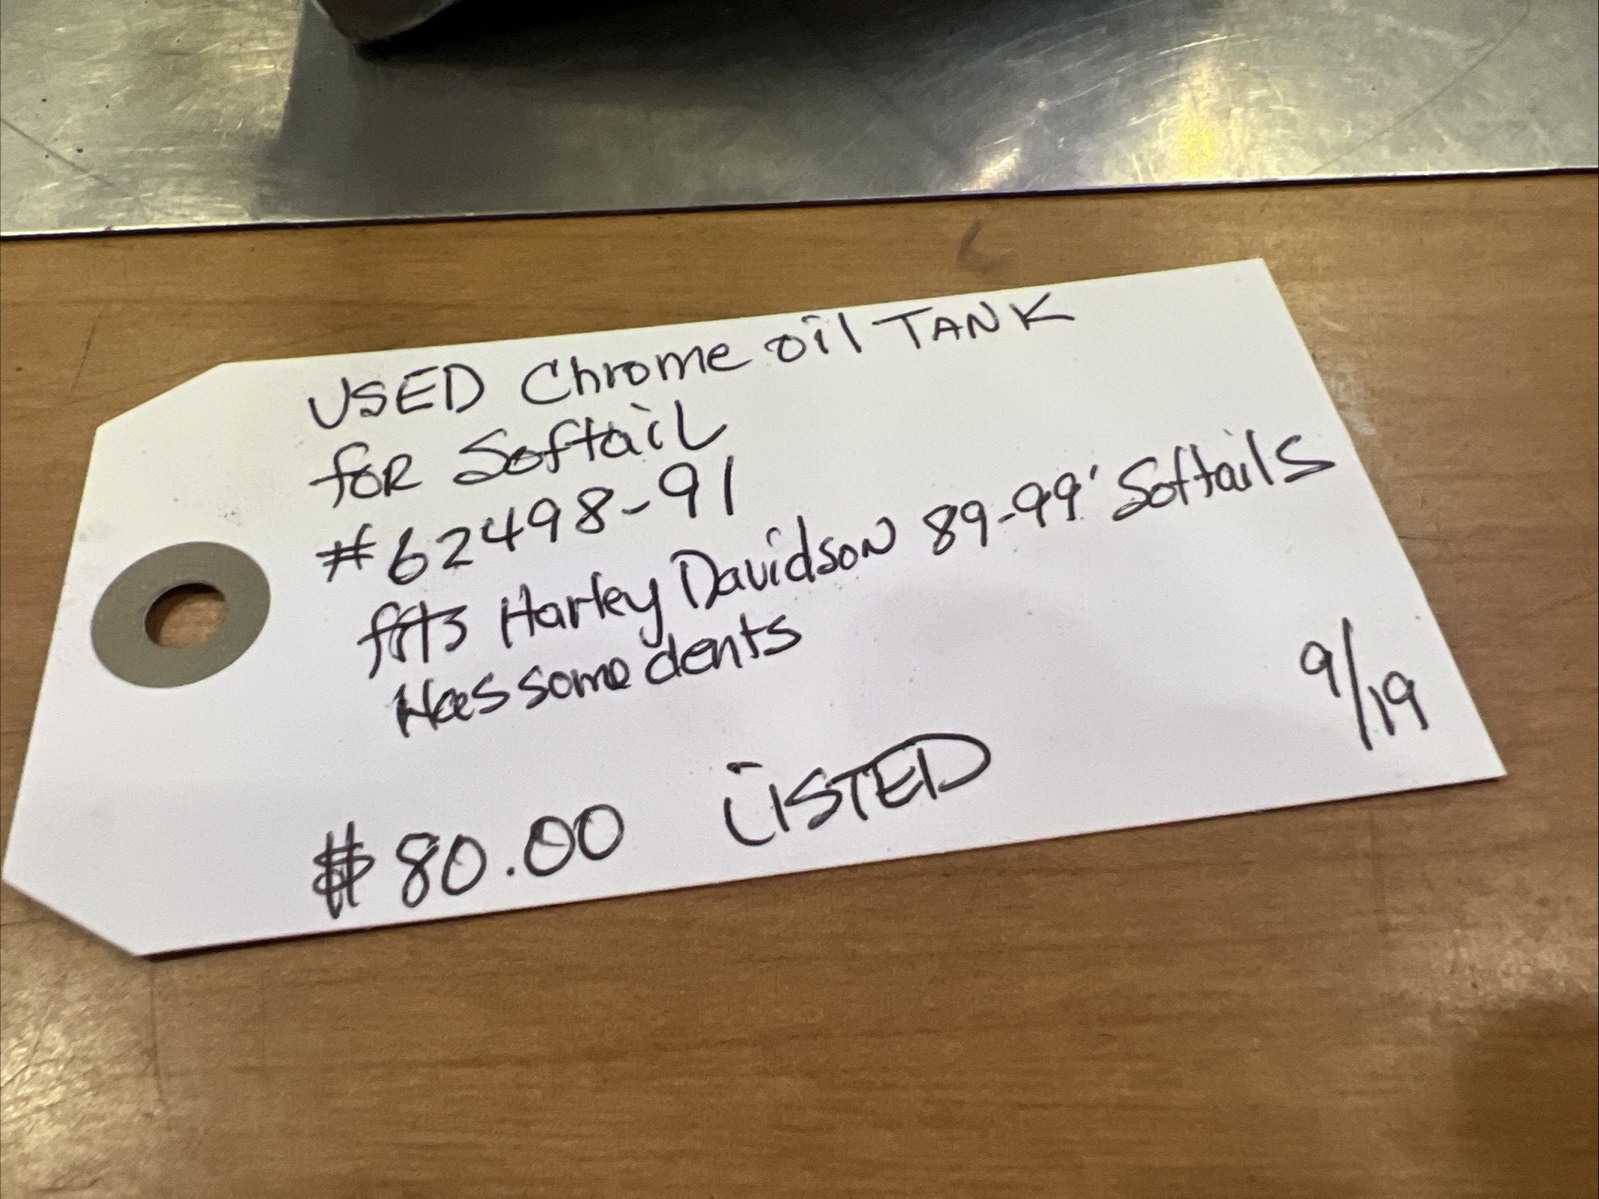 USED Chrome oil TANK
for Softail
#62498-91
fits Harley Davidson 89-99' Softails
Has some dents
9/19
$80.00 LISTED